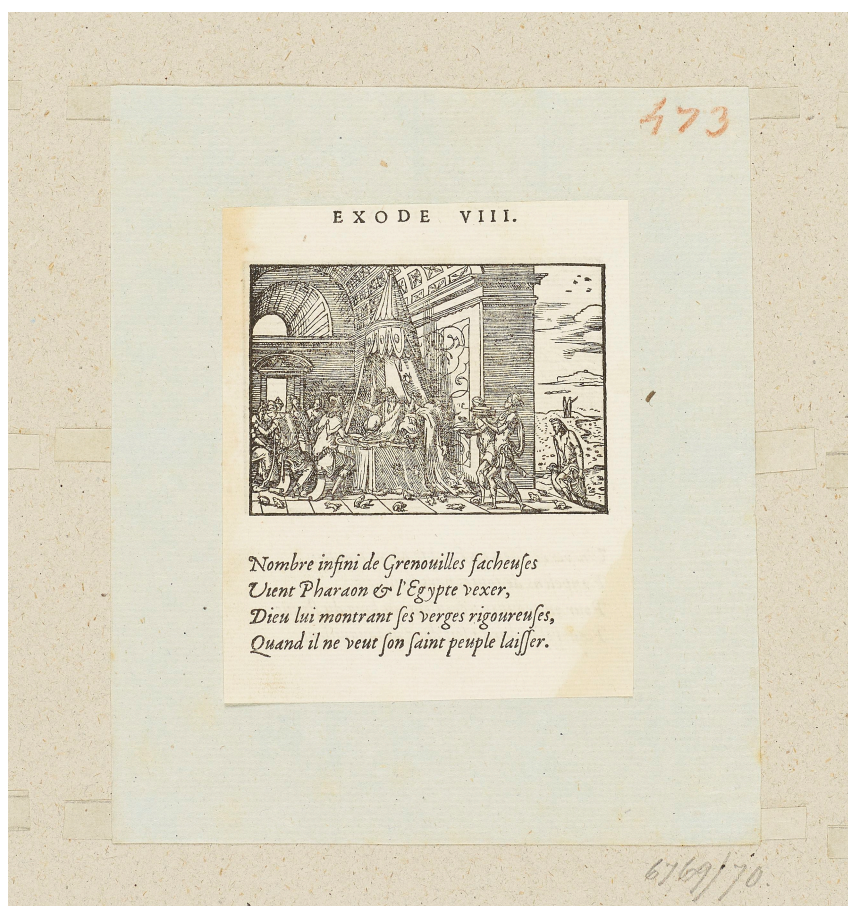 473
EXODE VIII.
Nombre infini de Grenouilles facheuſes
Vient Pharaon & l'Egypte vexer,
Dieu lui montrant ſes verges rigoureuſes,
Quand il ne veut ſon ſaint peuple laiſſer.
6769/70.